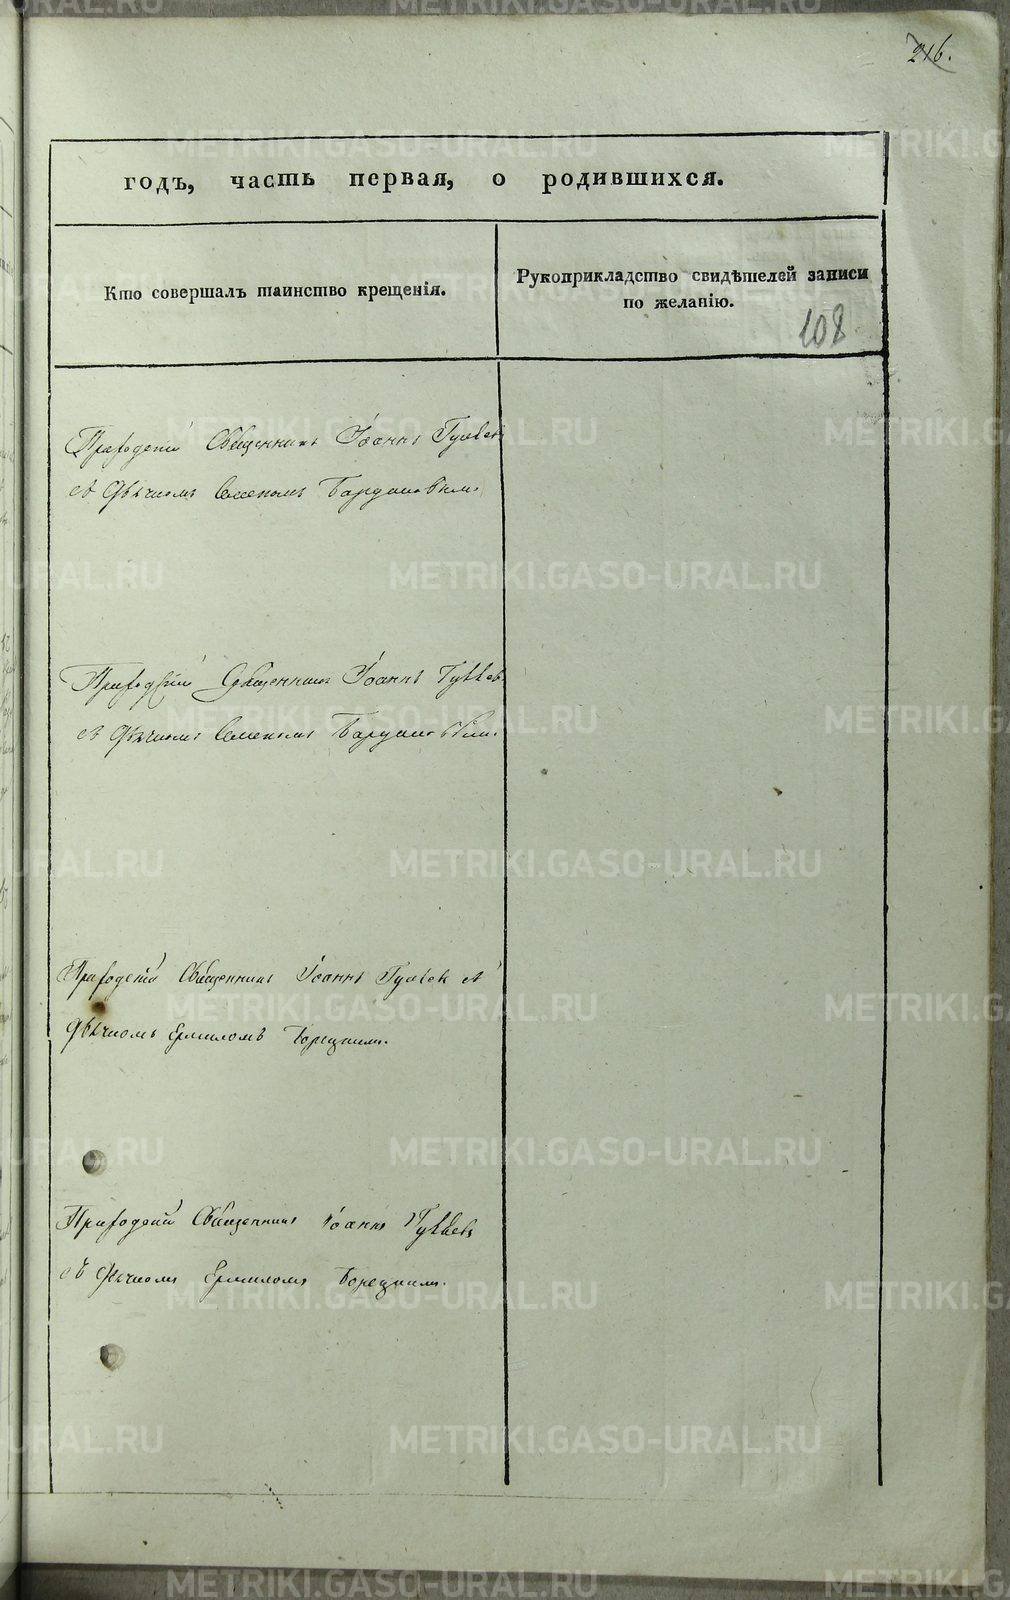 216.
годъ, часть первая, о родившихся.
Кто совершалъ таинство крещенія.
Рукоприкладство свидѣтелей записи
по желанію.
108
Приходскій Священникъ Іоаннъ
съ Дьячкомъ Семеномъ
Приходскій Священникъ Іоаннъ
съ Дьячкомъ Семеномъ
Приходскій Священникъ Іоаннъ съ
Дьячкомъ Ермиломъ Борецкимъ.
Приходскій Священникъ Іоаннъ
съ Дьячкомъ Ермиломъ Борецкимъ.
METRIKI.GASO-URAL.RU